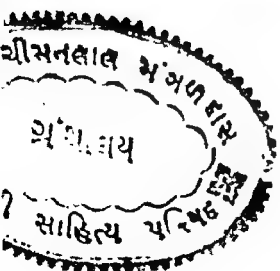 ચીમનલાલ મંગળદાસ
ગ્રંથાલય
સાહિત્ય પરિષદ